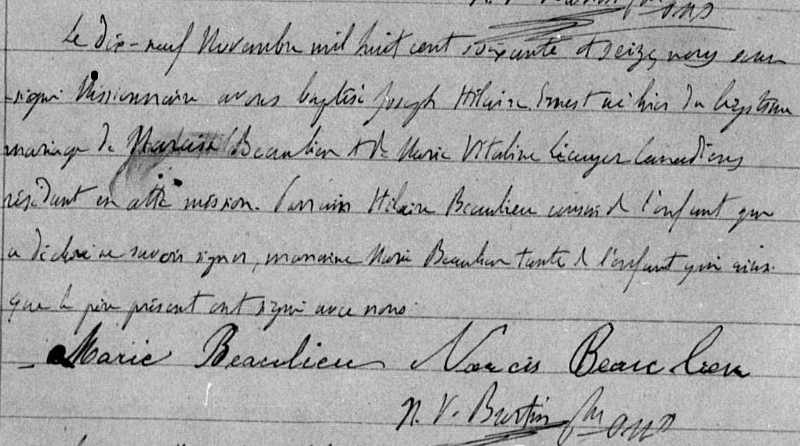 Le dix-neuf Novembre mil huit cent soixante et seize, nous sous
-signé Missionnaire avons baptisé Joseph Hilaire Ernest né hier du légitime
mariage de Narcisse Beaulieu & de Marie Vitaline Lécuyer Canadiens
résidant en cette mission. Parrain Hilaire Beaulieu cousin de l'enfant qui
a déclaré ne savoir signer, marraine Marie Beaulieu tante de l'enfant qui ainsi
que le père présent ont signé avec nous.
Marie Beaulieu Narcis Beaulieu
N. V. Burtin ptre OMI